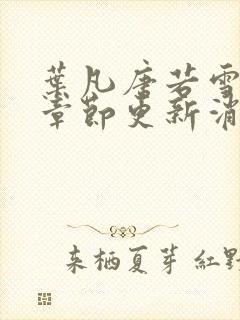 葉凡唐若雪
章節更新消
来栖夏芽 紅野